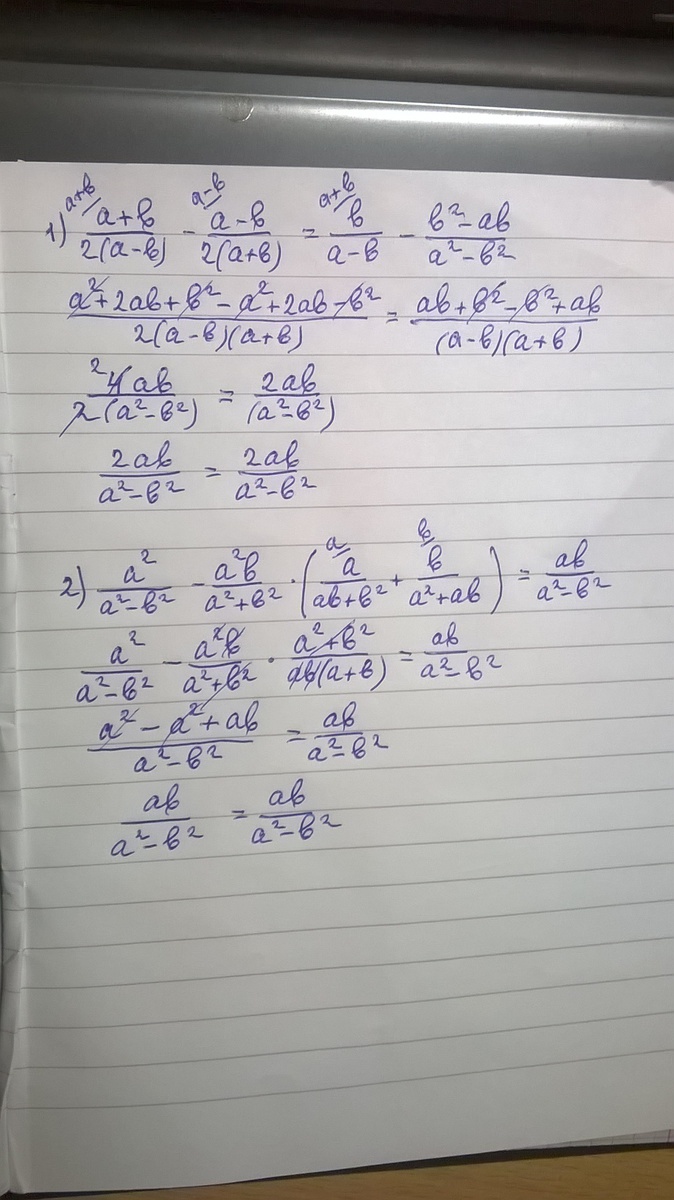 1) ᵃ⁺ᵇ/ (a+b)/(2(a-b)) - ᵃ⁻ᵇ/ (a-b)/(2(a+b)) = ᵃ⁺ᵇ/ b/(a-b) - (b²-ab)/(a²-b²)
(a²+2ab+b²-a²+2ab-b²)/(2(a-b)(a+b)) = (ab+b²-b²+ab)/((a-b)(a+b))
²4ab/(2(a²-b²)) = 2ab/(a²-b²)
2ab/(a²-b²) = 2ab/(a²-b²)
2) a²/(a²-b²) - a²b/(a²+b²) · (ᵃ/ a/(ab+b²) + ᵇ/ b/(a²+ab)) = ab/(a²-b²)
a²/(a²-b²) - a²b/(a²+b²) · (a²+b²)/(ab(a+b)) = ab/(a²-b²)
(a²-a²+ab)/(a²-b²) = ab/(a²-b²)
ab/(a²-b²) = ab/(a²-b²)